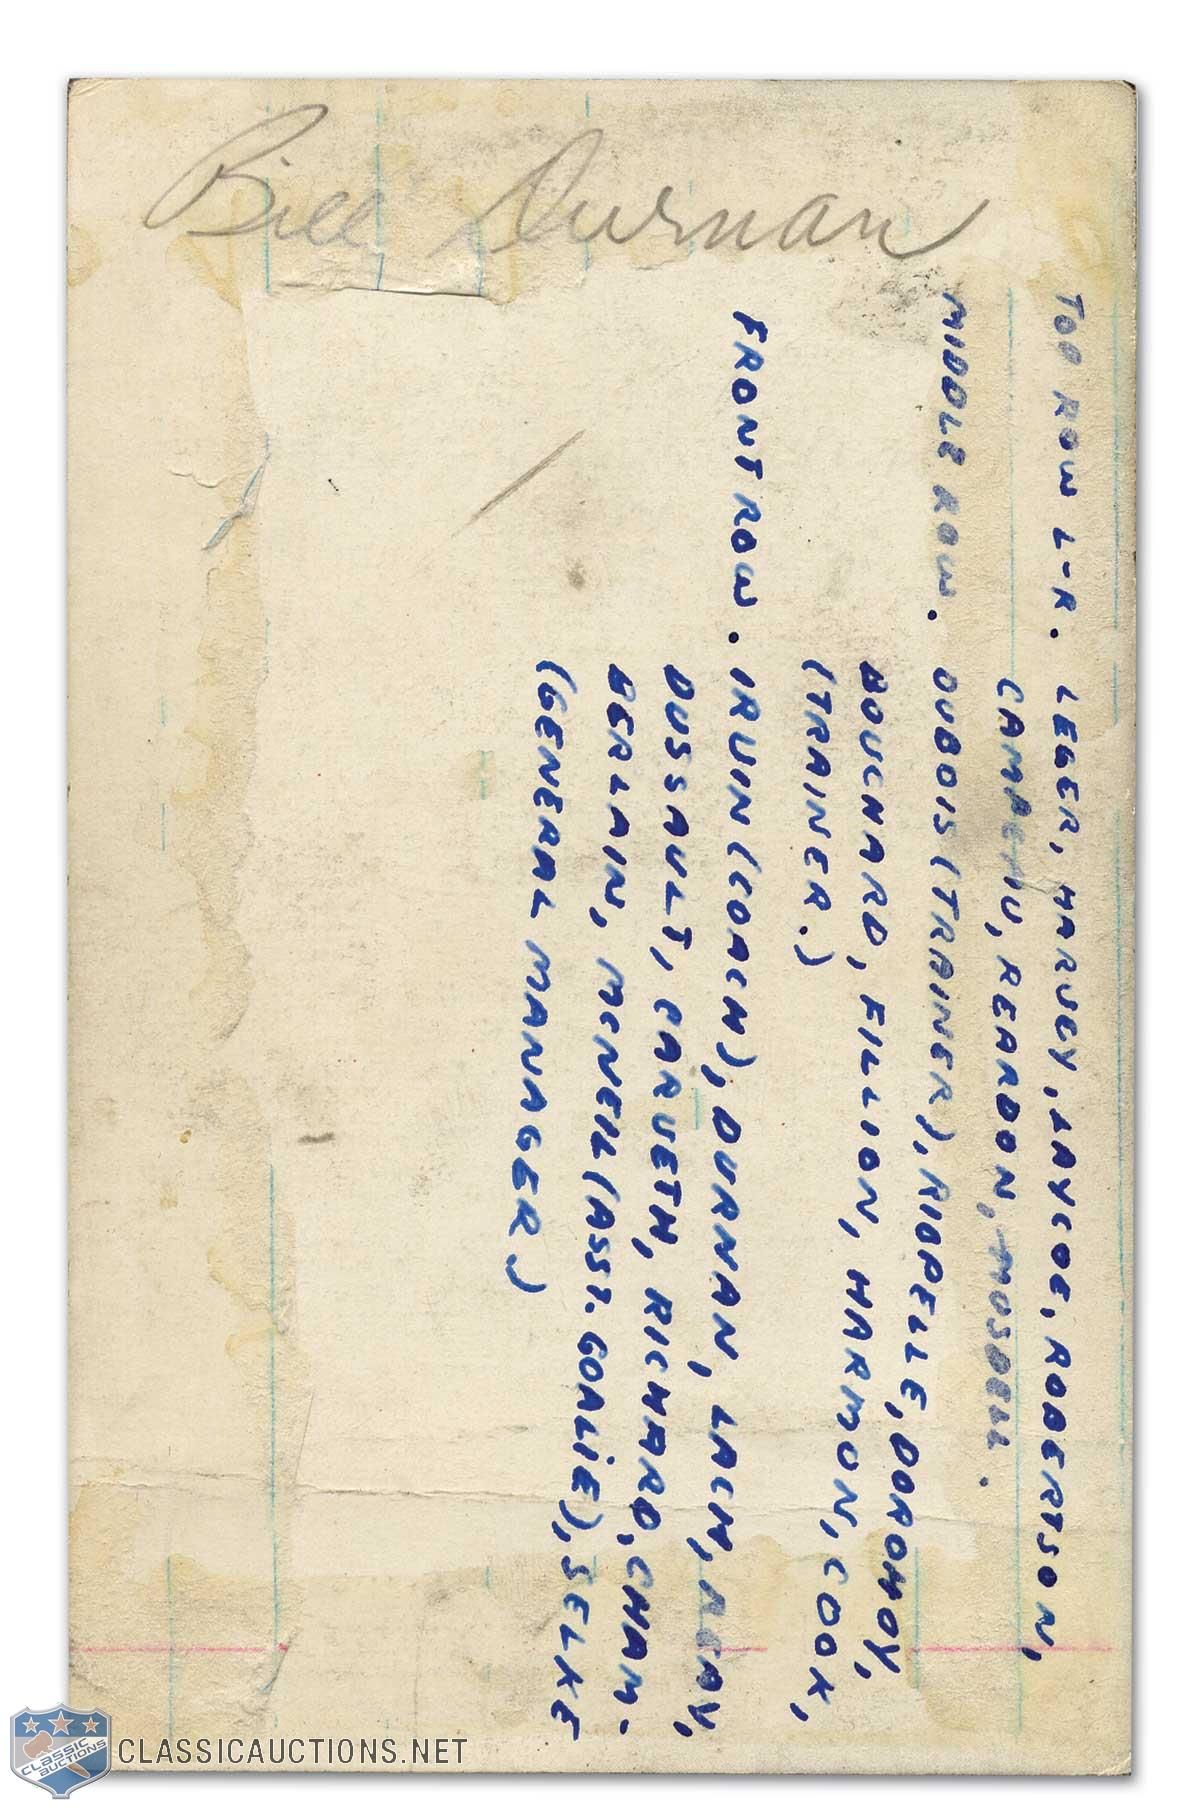 Bill Durnan
TOP ROW L-R. LEGER, HARVEY, LAYCOE, ROBERTSON,
CAMPEAU, REARDON, MOSDELL.
MIDDLE ROW. DUBOIS (TRAINER), RIOPELLE, DOROHOY,
BOUCHARD, FILLION, HARMON, COOK,
(TRAINER.)
FRONT ROW. IRVIN (COACH), DURNAN, LACH, REAY,
DUSSAULT, CARVETH, RICHARD, CHAM-
BERLAIN, MCNEIL (ASST. GOALIE), SELKE
(GENERAL MANAGER.)
CLASSIC AUCTIONS
CLASSICAUCTIONS.NET